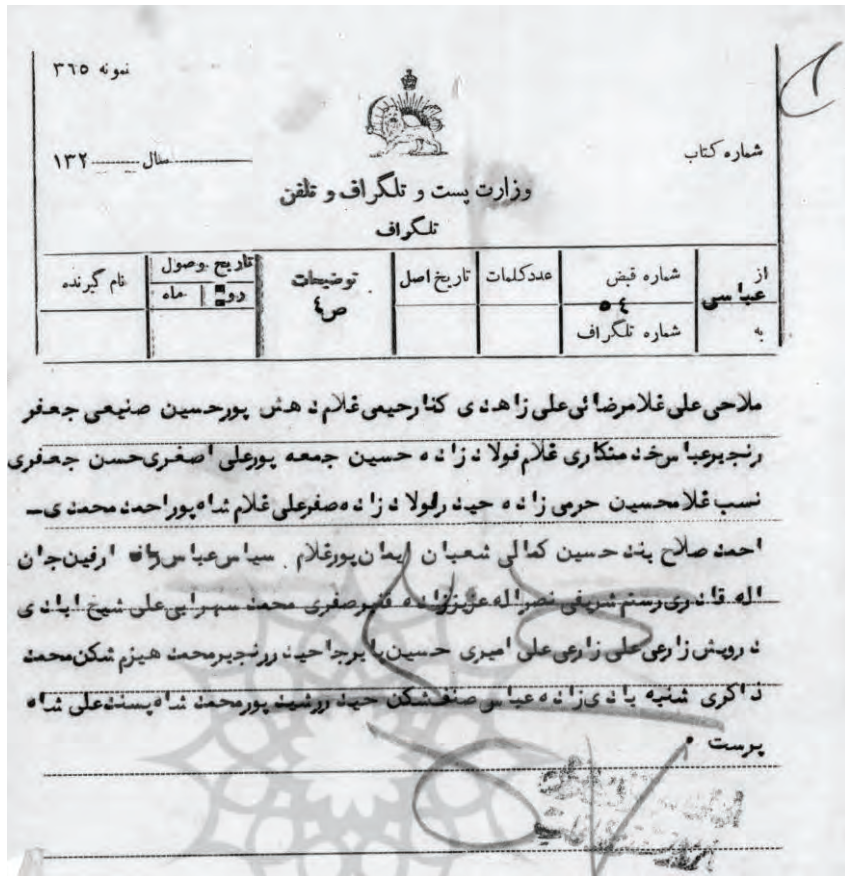 نمونه ۳٦٥
شماره کتاب
سال ........... ۱۳۲
وزارت پست و تلگراف و تلفن
تلگراف
از عباسی
به
شماره قبض ٥٤
شماره تلگراف
عدد کلمات
تاریخ اصل
توضیحات
ص٤
تاریخ وصول
روز ماه
نام گیرنده
ملاحی علی غلامرضائی علی زاهدی کنارحیمی غلام دهش پورحسین صنیعی جعفر
رنجبرعباس خدمتکاری غلام فولادزاده حسین جمعه پورعلی اصغری حسن جعفری
نسب غلامحسین حرمی زاده حیدر فولادزاده صفرعلی غلام شاه پوراحمد محمدی ـ
احمد صلاح بند حسین کمالی شعبان ایمان پورغلام عباس جان
اله قادری رستم شریفی نصراله عزیززاده قنبرصفری محمد سهرابی علی شیخ ابادی
درویش زارعی علی زارعی علی امیری حسین پابرجا حیدر رنجبرمحمد هیزم شکن محمد
ذاکری شنبه بادی زاده عباس صف شکن حیدر رشید پورمحمد شاه پسند علی شاه
پرست •